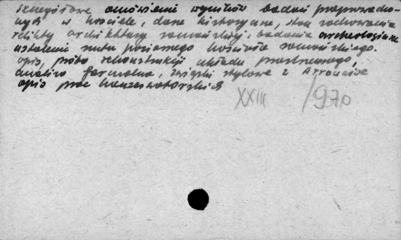 szczegółowe omówienie wyników badań przeprowadzo-
nych w kościele, dane historyczne, stan zachowania
relikty architektury romańskiej, badania archeologiczne
ustalenie rzutu poziomego kościoła romańskiego.
opis, próba rekonstrukcji układu przestrzennego,
analiza formalna, związki stylowe z
opis prac konserwatorskich
XXIII /970